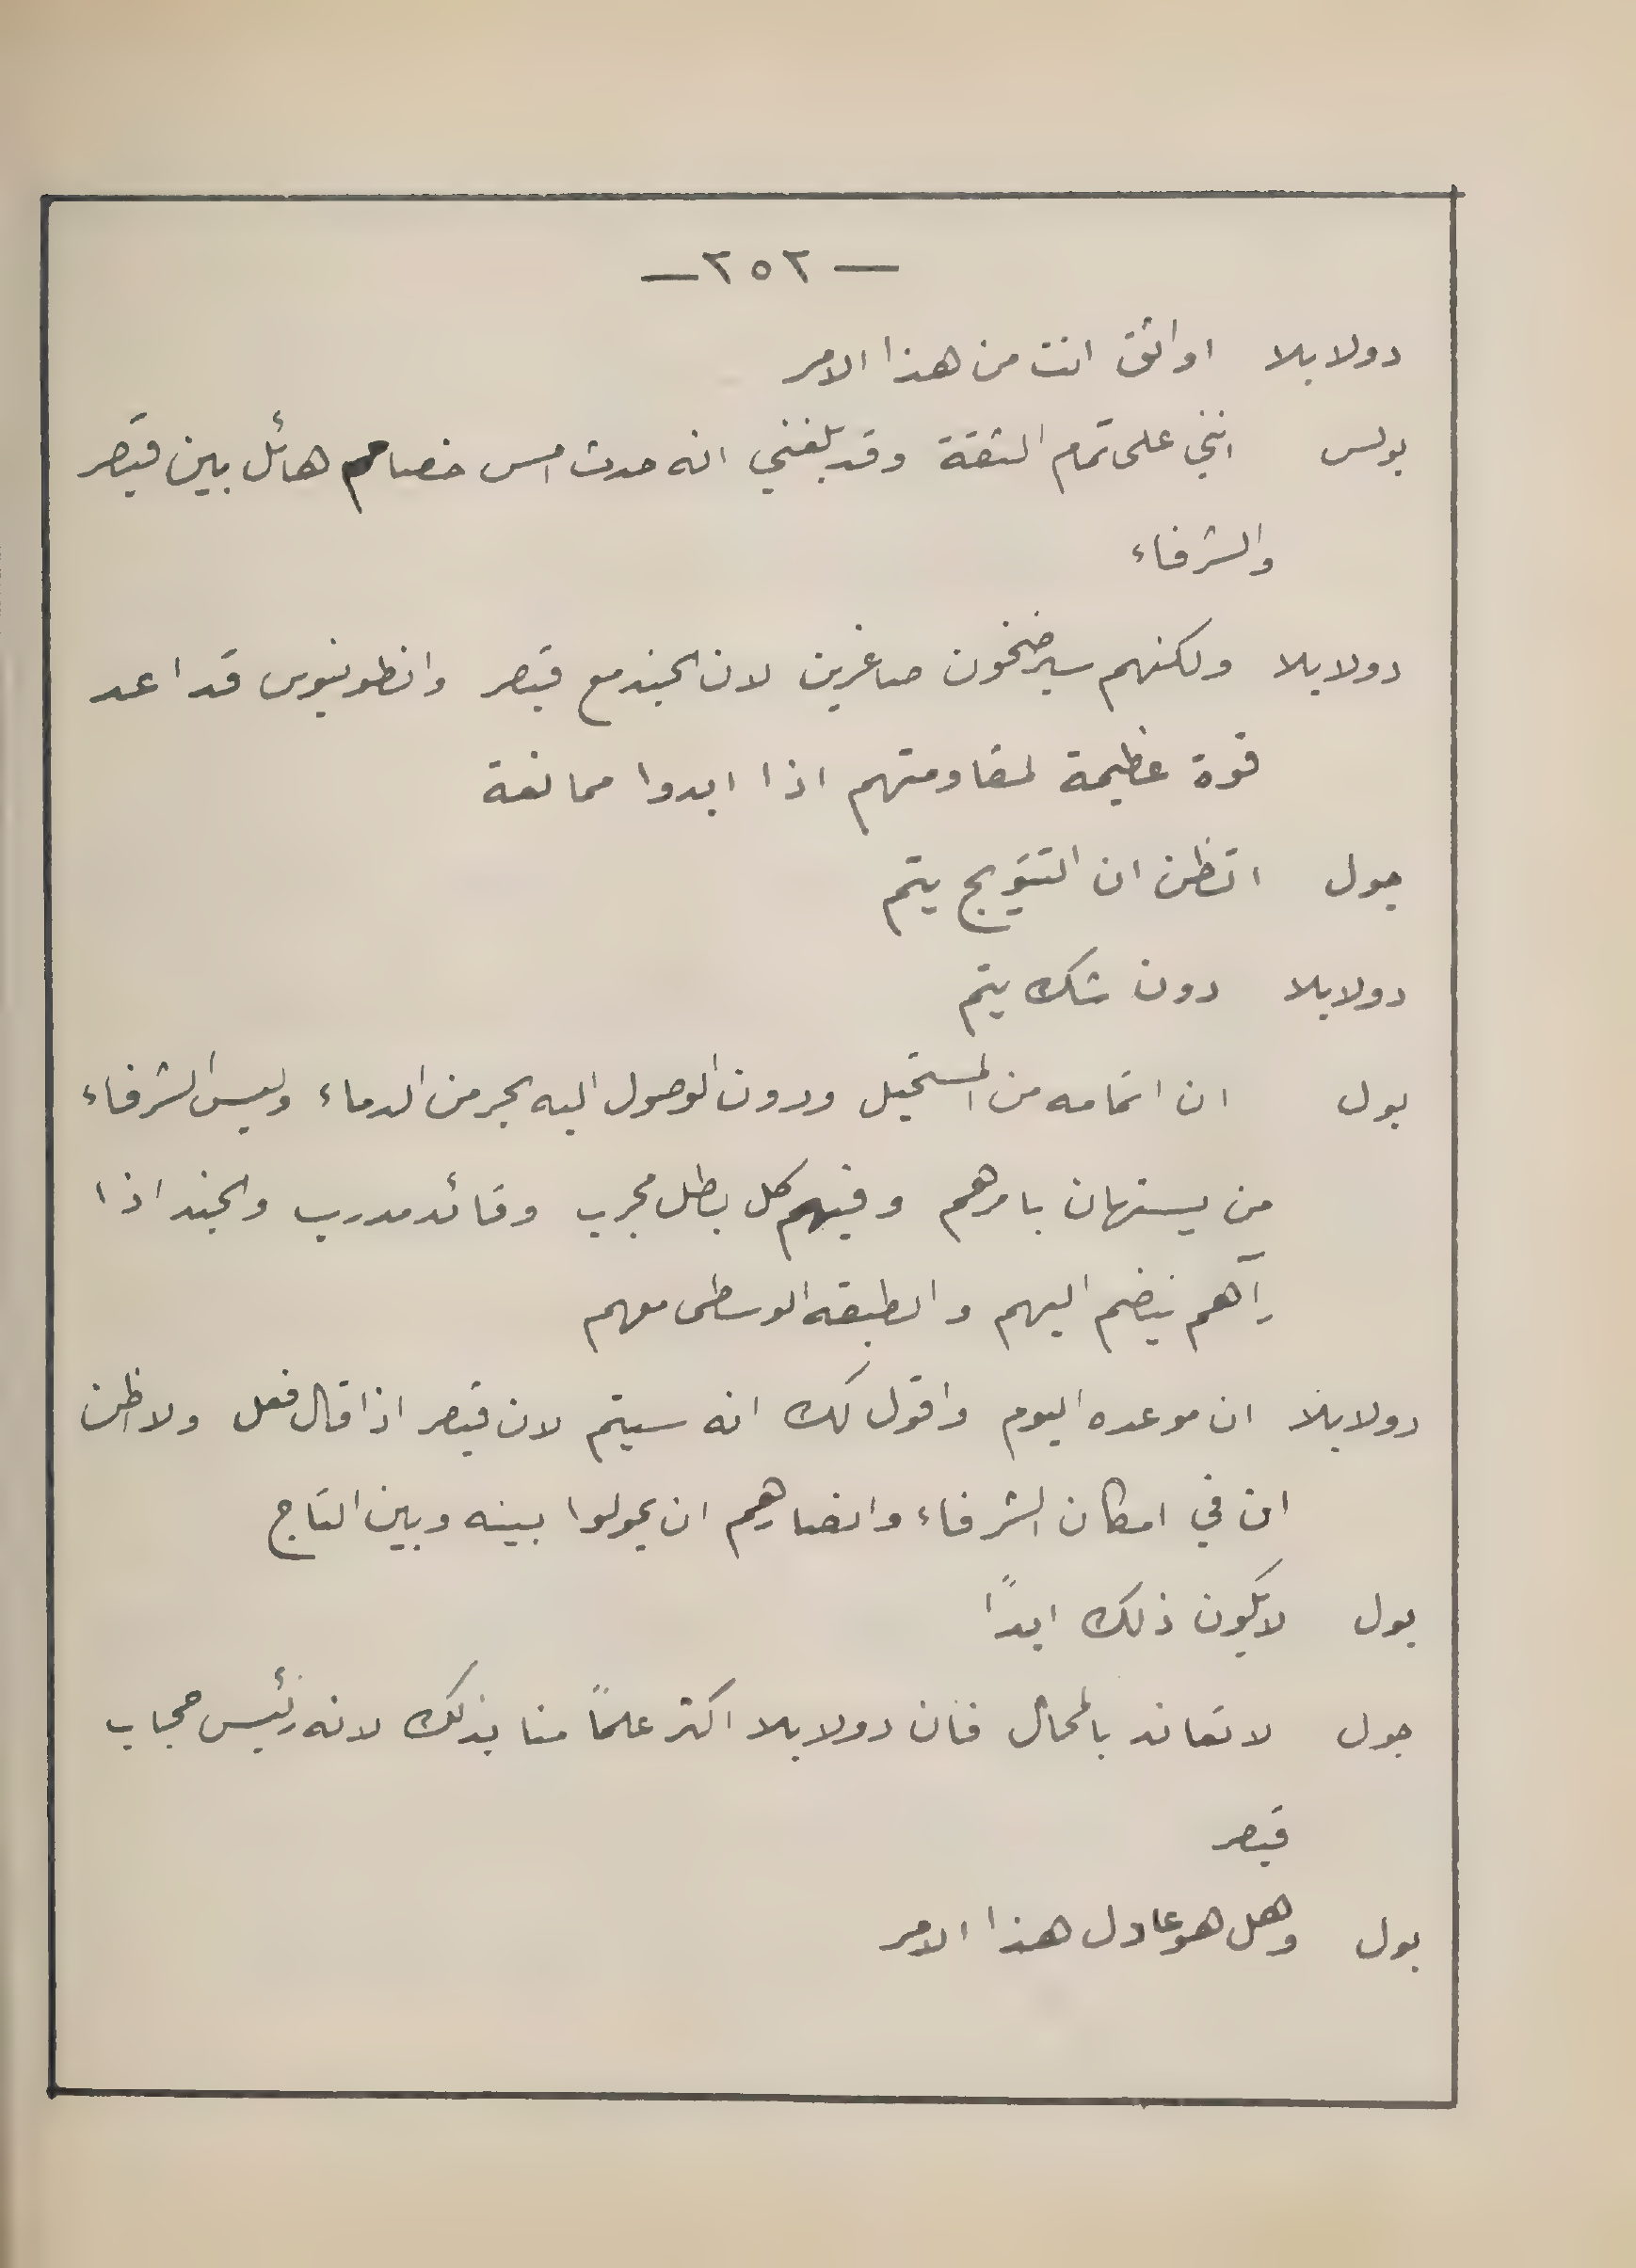 — ٢٥٢ —
دولابلا اواثق انت من هذا الامر
بولس انني على تمام الثقة وقد بلغني انه حدث امس خصام هائل بين قيصر
والشرفاء
دولابلا ولكنهم سيرضخون صاغرين لان الجند مع قيصر وانطونيوس قد اعد
قوة عظيمة لمقاومتهم اذا ابدوا ممانعة
جول اتظن ان التتويج يتم
دولابلا دون شك يتم
بول ان اتمامه من المستحيل ودون الوصول اليه بحر من الدماء وليس الشرفاء
من يستهان بامرهم وفيهم كل بطل مجرب وقائد مدرب والجند اذا
رآهم ينضم اليهم والطبقه الوسطى معهم
دولابلا ان موعده اليوم واقول لك انه سيتم لان قيصر اذا قال فعل ولا اظن
ان في امكان الشرفاء وانصارهم ان يحولوا بينه وبين التاج
بول لا يكون ذلك ابدًا
جول لا تعاند بالمحال فان دولابلا اكثر علمًا منا بذلك لانه رئيس حجاب
قيصر
بول وهل هو عادل هذا الامر